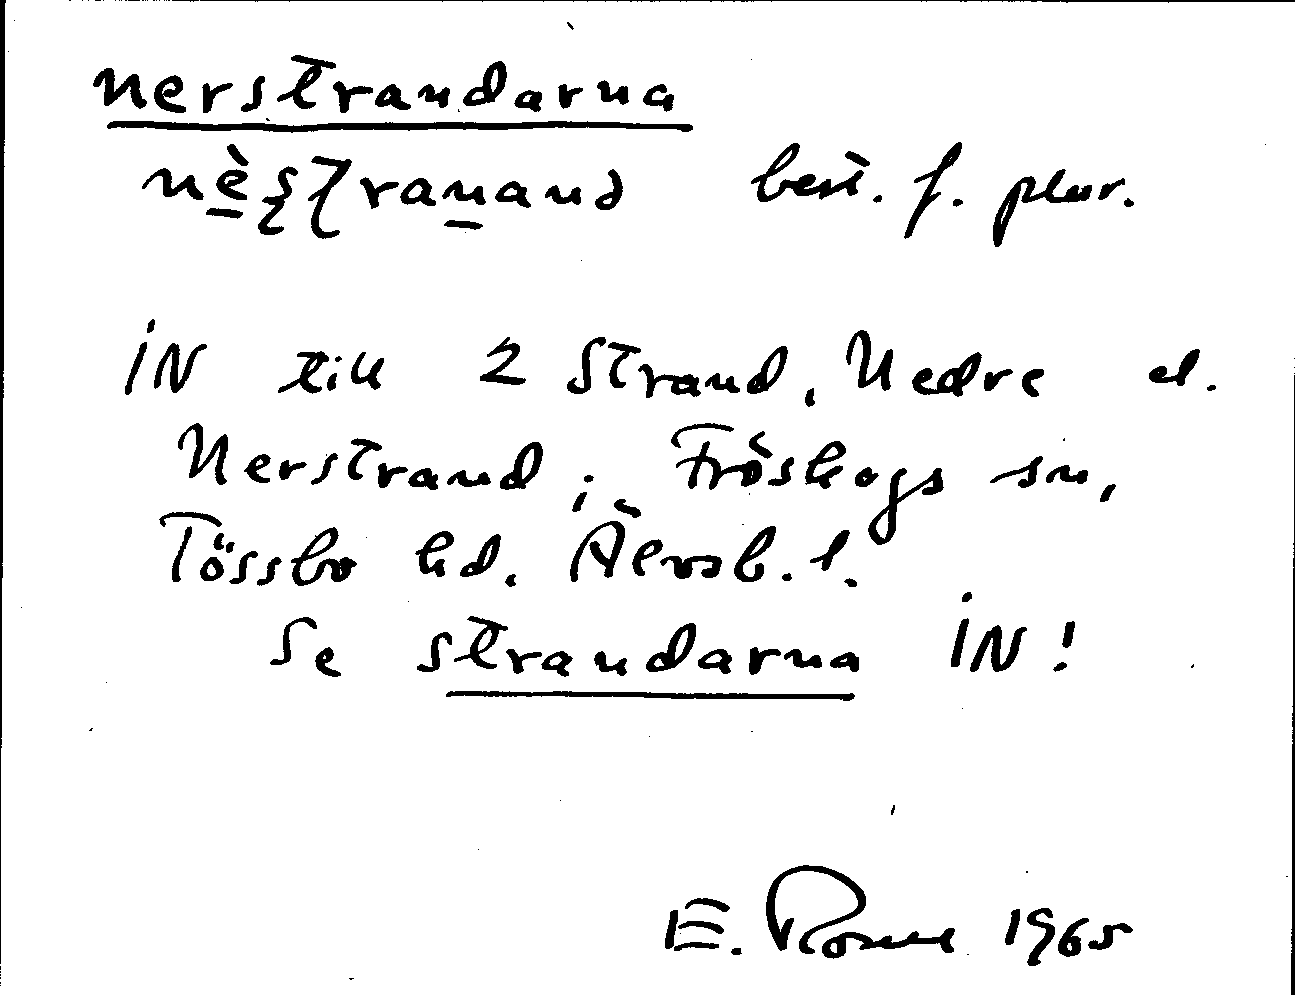 nerstrandarna
best. f. plur.
IN till 2 Strand, Nedre el.
Nerstrand i Fröskogs sn,
Tössbo hd. Älvsb. l.
Se strandarna IN!
E. 1965